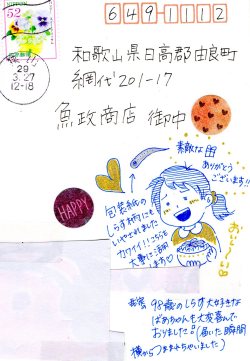 52
29
3.27
12-18
6491112
和歌山県日高郡由良町
網代201-17
魚政商店 御中
素敵な
ありがとう
ございます!!
包装紙の
しらす柄にも
いやされました
カワイイ!!こちらも
大事に活用
します
HAPPY
98歳のしらす大好きな
ばあちゃんも大変喜んで
おりました!!(届いた瞬間
横からつままれちゃいました)